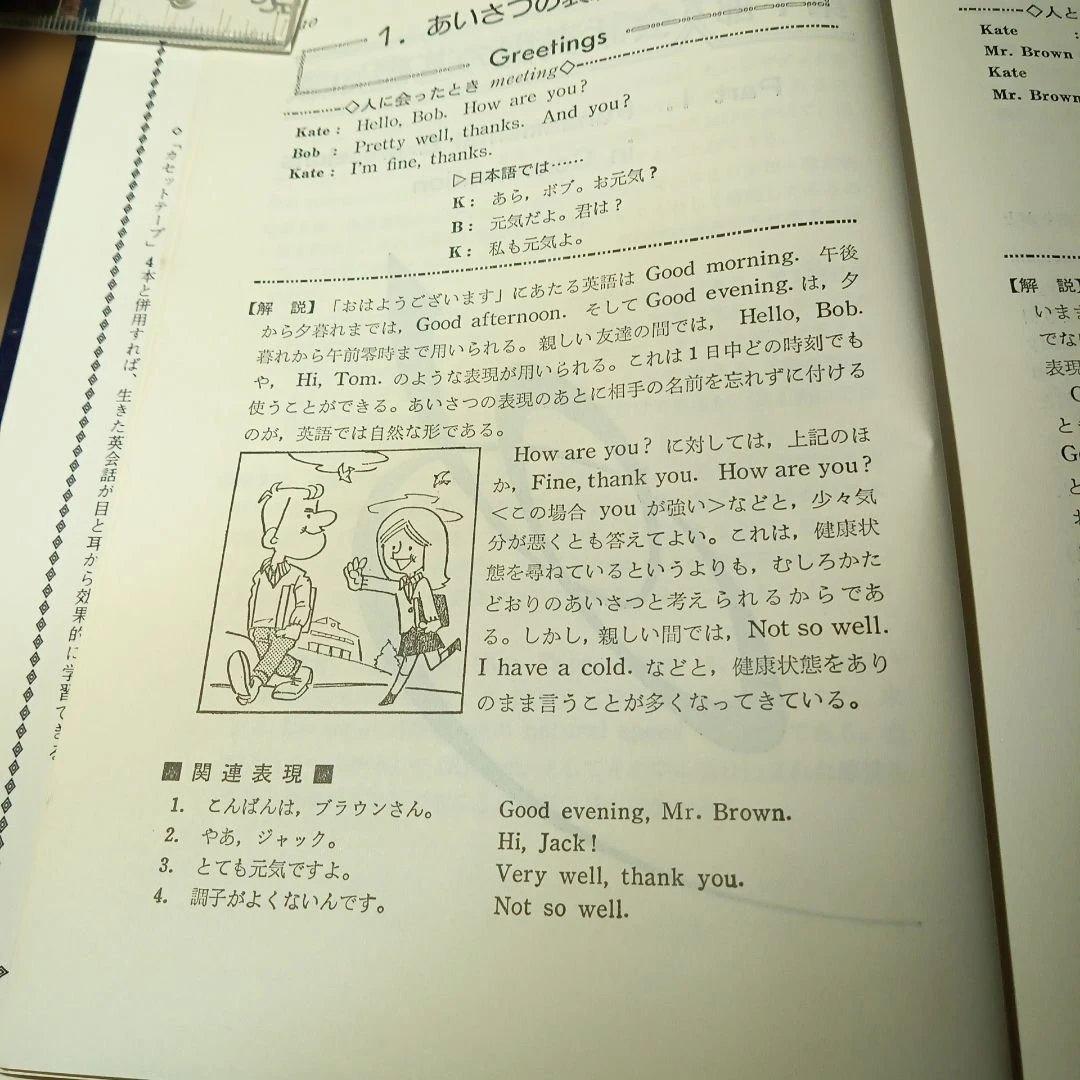 1. あいさつの
Greetings
◇人に会ったとき meeting◇
Kate : Hello, Bob. How are you?
Bob : Pretty well, thanks. And you?
Kate : I'm fine, thanks.
▷日本語では……
K : あら，ボブ。お元気？
B : 元気だよ。君は？
K : 私も元気よ。
【解 説】「おはようございます」にあたる英語は Good morning. 午後
から夕暮れまでは，Good afternoon. そして Good evening. は，夕
暮れから午前零時まで用いられる。親しい友達の間では， Hello, Bob.
や， Hi, Tom. のような表現が用いられる。これは１日中どの時刻でも
使うことができる。あいさつの表現のあとに相手の名前を忘れずに付ける
のが，英語では自然な形である。
How are you? に対しては，上記のほ
か，Fine, thank you. How are you?
＜この場合 you が強い＞などと，少々気
分が悪くとも答えてよい。これは，健康状
態を尋ねているというよりも，むしろかた
どおりのあいさつと考えられるからであ
る。しかし，親しい間では，Not so well.
I have a cold. などと，健康状態をあり
のまま言うことが多くなってきている。
■関連表現■
1. こんばんは，ブラウンさん。 Good evening, Mr. Brown.
2. やあ，ジャック。 Hi, Jack!
3. とても元気ですよ。 Very well, thank you.
4. 調子がよくないんです。 Not so well.
◇「カセットテープ」4本と併用すれば、生きた英会話が目と耳から効果的に学習できる
◇人と
Kate :
Mr. Brown
Kate
Mr. Brown
【解 説】
いま
でな
表現